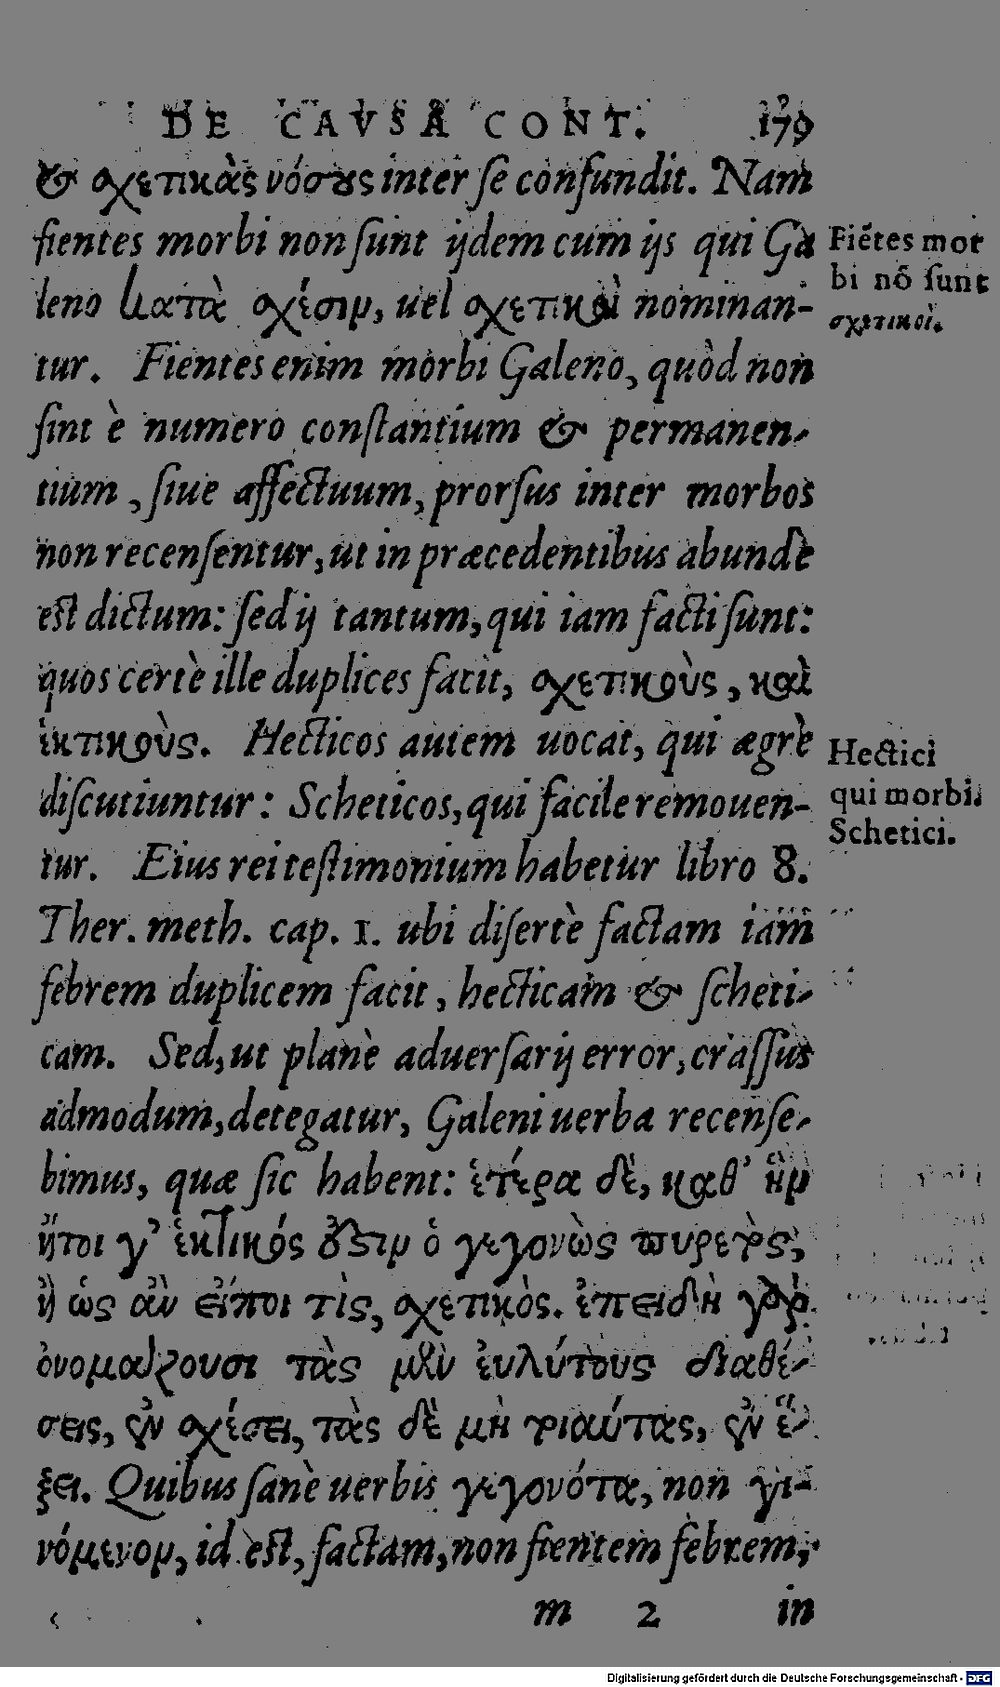 DE CAVSA CONT. 179
& σχετικὰς νόσους inter se confundit. Nam
fientes morbi non sunt ijdem cum ijs qui Ga
leno κατὰ σχέσιν, uel σχετικοὶ nominan-
tur. Fientes enim morbi Galeno, quòd non
sint è numero constantium & permanen-
tium, siue affectuum, prorsus inter morbos
non recensentur, ut in præcedentibus abundè
est dictum: sed ij tantum, qui iam facti sunt:
quos certè ille duplices facit, σχετικοὺς, καὶ
ἑκτικοὺς. Hecticos autem uocat, qui ægrè
discutiuntur: Scheticos, qui facile remouen-
tur. Eius rei testimonium habetur libro 8.
Ther. meth. cap. 1. ubi disertè factam iam
febrem duplicem facit, hecticam & scheti-
cam. Sed, ut planè aduersarij error, crassus
admodum, detegatur, Galeni uerba recense-
bimus, quæ sic habent: ἑτέρα δὲ, καθ’ ἣν
ἤτοι γ’ ἑκτικός ὅζιν ὁ γεγονὼς πυρετὸς,
ἢ ὡς ἂν εἴποι τὶς, σχετικὸς. ἐπειδὴ γὰρ
ὀνομάζουσι τὰς μὲν ἐυλύτους διαθέ-
σεις, ἐν σχέσει, τὰς δὲ μὴ τοιαύτας, ἐν ἕ-
ξει. Quibus sanè uerbis γεγονότα, non γι-
νόμενον, id est, factam, non fientem febrem,
m 2 in
Fiẽtes mor
bi nõ sunt
σχετικοὶ.
Hectici
qui morbi.
Schetici.
Digitalisierung gefördert durch die Deutsche Forschungsgemeinschaft - DFG